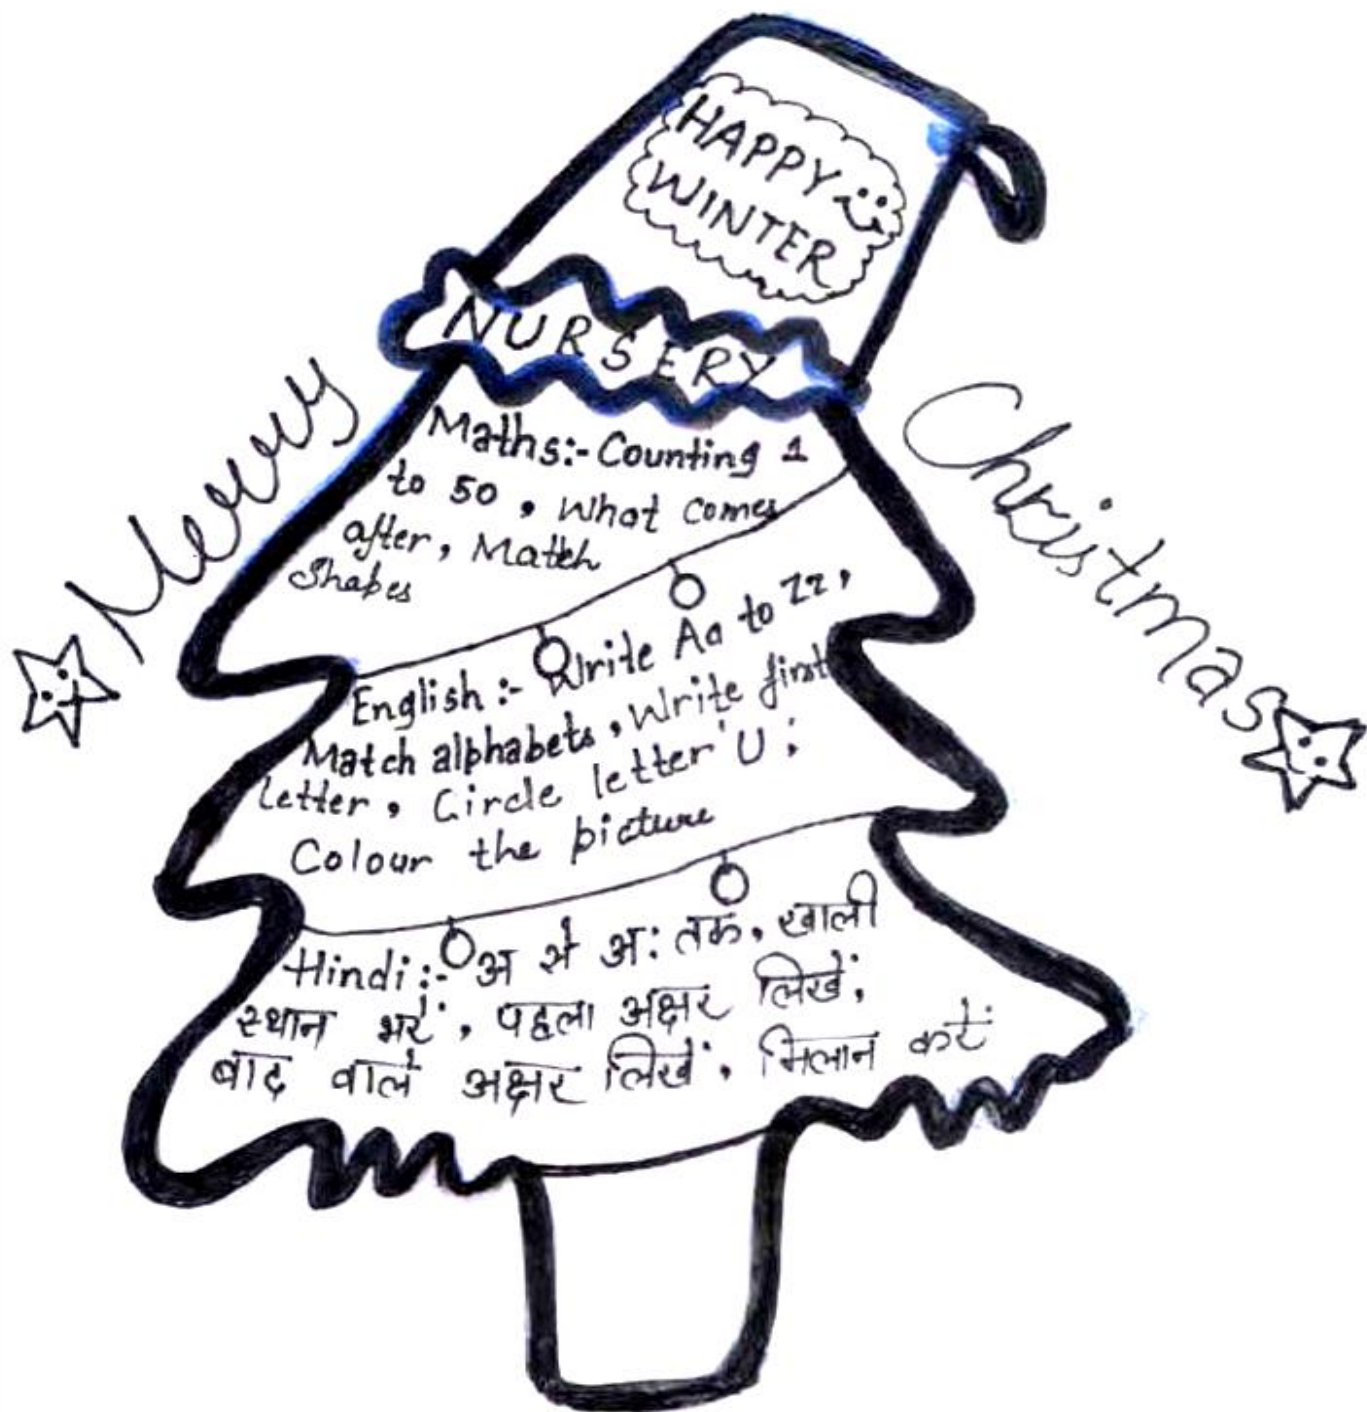 HAPPY
WINTER
NURSERY
Merry
Christmas
Maths:- Counting 1
to 50, What comes
after, Match
Shapes
English:- Write Aa to Zz,
Match alphabets, Write first
letter, Circle letter 'U',
Colour the picture
Hindi:- अ से अः तक, खाली
स्थान भरें, पहला अक्षर लिखें,
बाद वाले अक्षर लिखें, मिलान करें